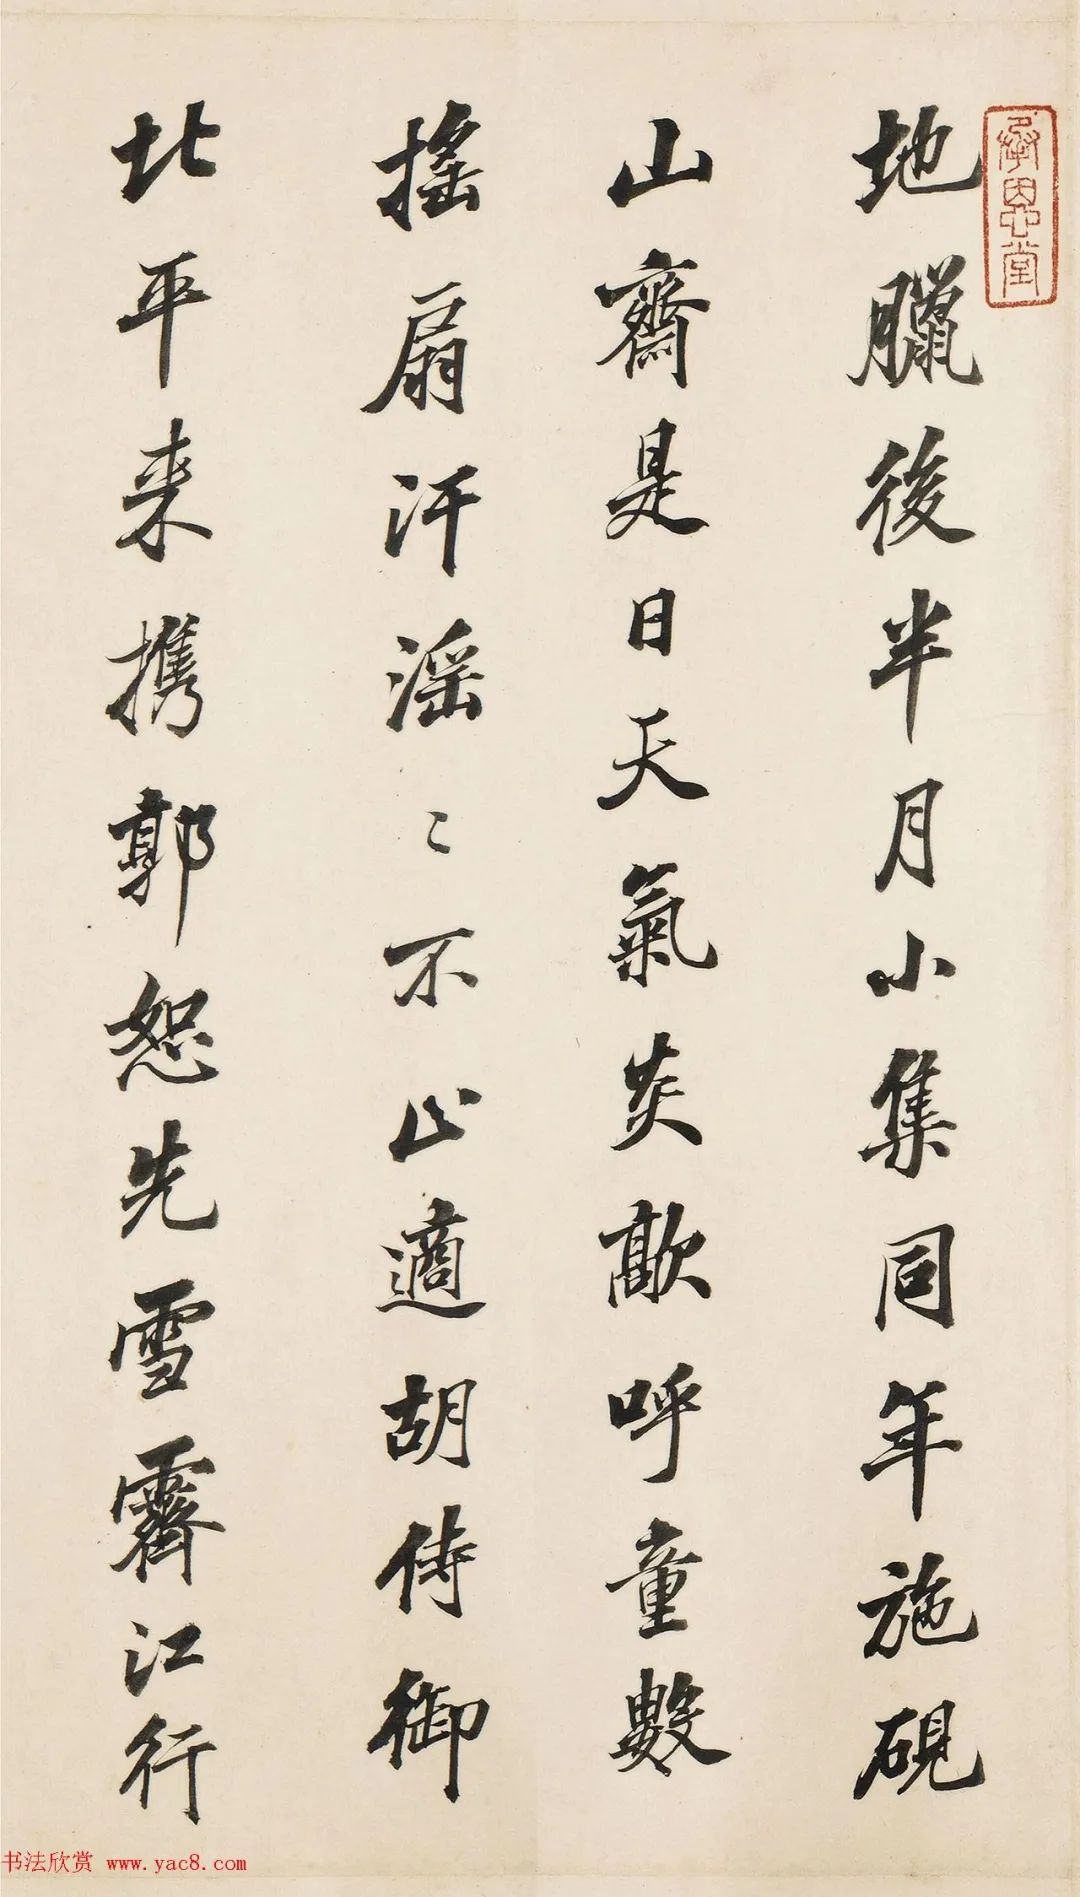 承恩堂
地臘後半月小集同年施硯
山齋是日天氣炎歊呼童數
搖扇汗滛〻不止適胡侍御
北平来攜郭恕先雪霽江行
书法欣赏 www.yac8.com